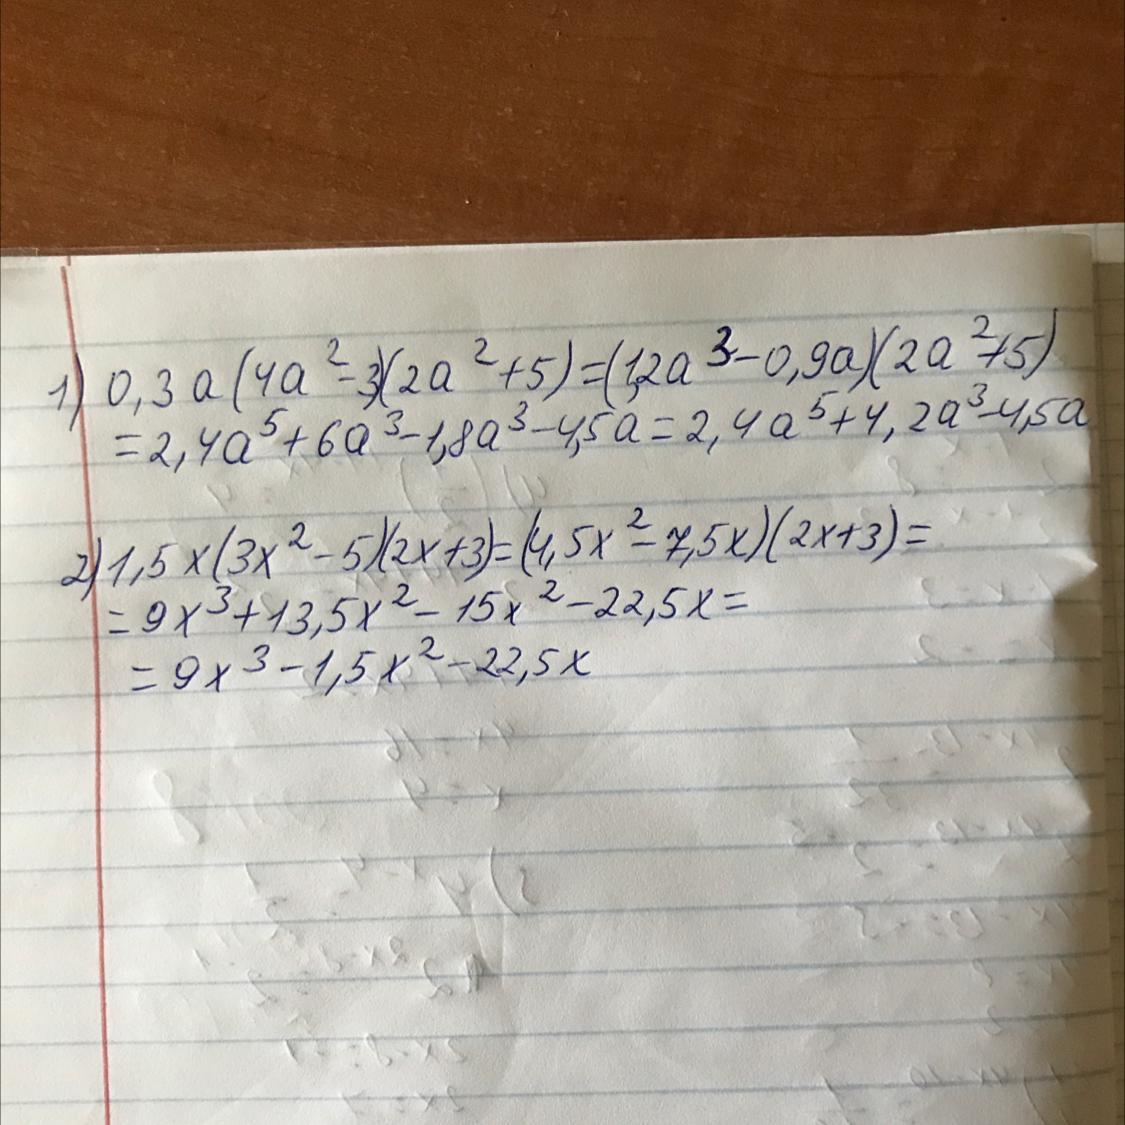 1) 0,3a(4a²-3)(2a²+5)=(1,2a³-0,9a)(2a²+5)
=2,4a⁵+6a³-1,8a³-4,5a=2,4a⁵+4,2a³-4,5a
2) 1,5x(3x²-5)(2x+3)=(4,5x²-7,5x)(2x+3)=
=9x³+13,5x²-15x²-22,5x=
=9x³-1,5x²-22,5x